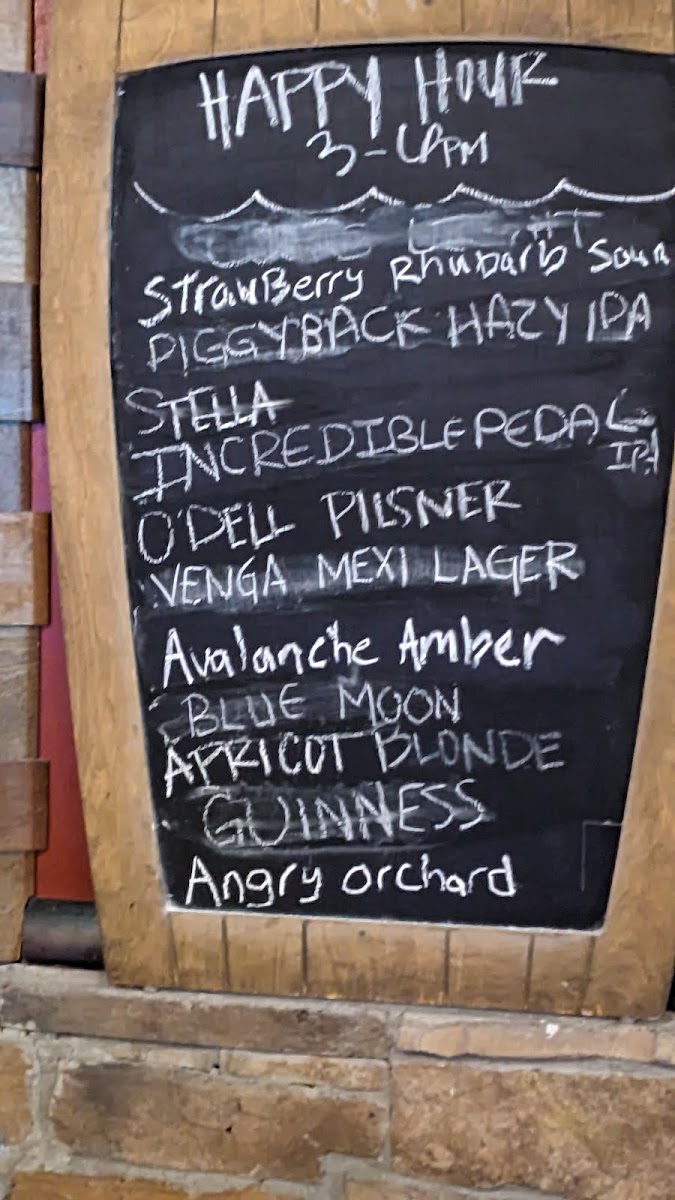 HAPPY HOUR
3-6PM
Strawberry Rhubarb Sour
PIGGYBACK HAZY IPA
STELLA
INCREDIBLE PEDAL
IPA
O'DELL PILSNER
VENGA MEXI LAGER
Avalanche Amber
BLUE MOON
APRICOT BLONDE
GUINNESS
Angry orchard